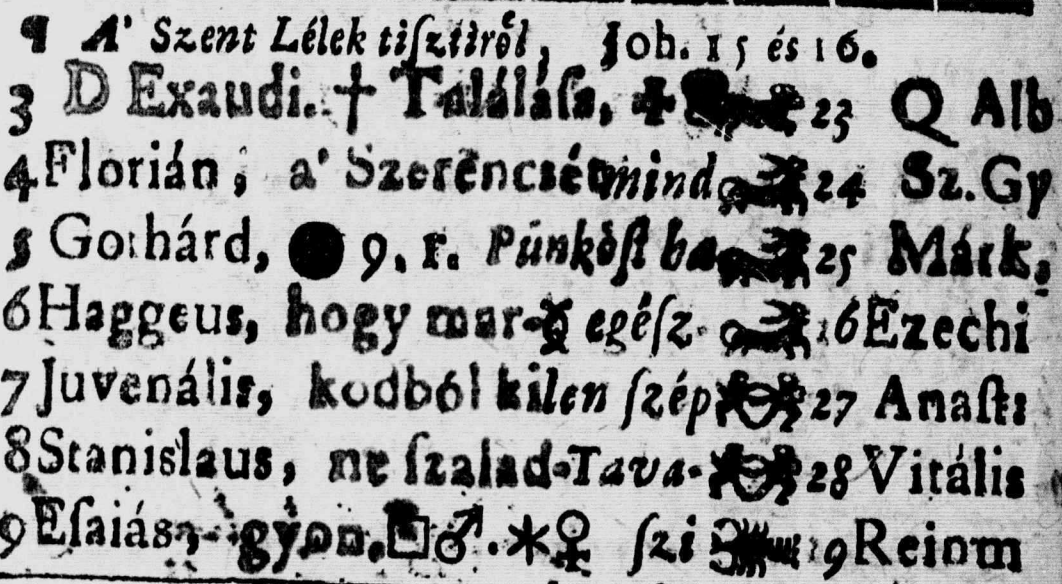 ¶ A' Szent Lélek tiſztiröl, Joh. 15 és 16.
3 D Exaudi. † Találáſa, 23 Q Alb
4 Florián, a' Szerencsét mind 24 Sz. Gy
5 Gothárd, ● 9. r. Púnköſt ba 25 Márk,
6 Haggeus, hogy mar- ☿ egéſz 26 Ezechi
7 Juvenális, kodból kilen ſzép 27 Anaſt:
8 Stanislaus, ne ſzalad- Tava- 28 Vitális
9 Eſaiás, gyon. □ ♂. ⚹ ♀ ſzi 29 Reinm